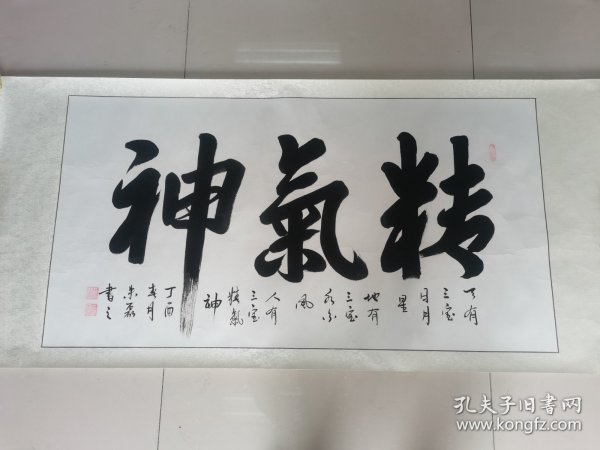 精氣神
天有
三宝
日月
星
地有
三宝
水火
風
人有
三宝
精氣
神
丁酉
书之
孔夫子旧书网
www.kongfz.com